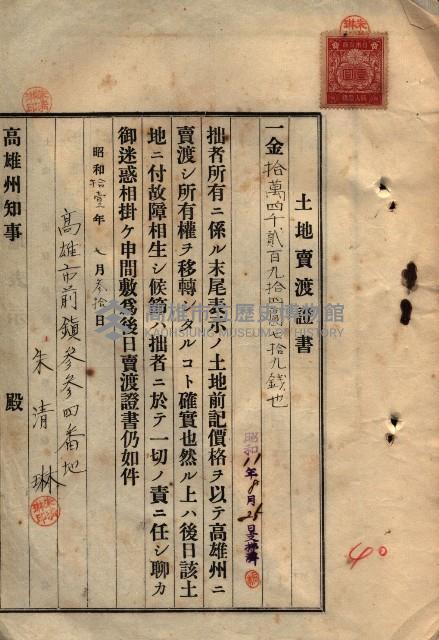 土地賣渡證書
一金拾萬四千貳百九拾四圓七拾九錢也
拙者所有ニ係ル末尾表示ノ土地前記價格ヲ以テ高雄州ニ
賣渡シ所有權ヲ移轉シタルコト確實也然ル上ハ後日該土
地ニ付故障相生シ候節ハ拙者ニ於テ一切ノ責ニ任シ聊カ
御迷惑相掛ケ申間敷爲後日賣渡證書仍如件
昭和拾壹年七月參拾日
高雄市前鎮參參四番地
朱清琳
高雄州知事 殿
昭和11年8月25日登記濟
40
高雄市立歷史博物館
KAOHSIUNG MUSEUM OF HISTORY